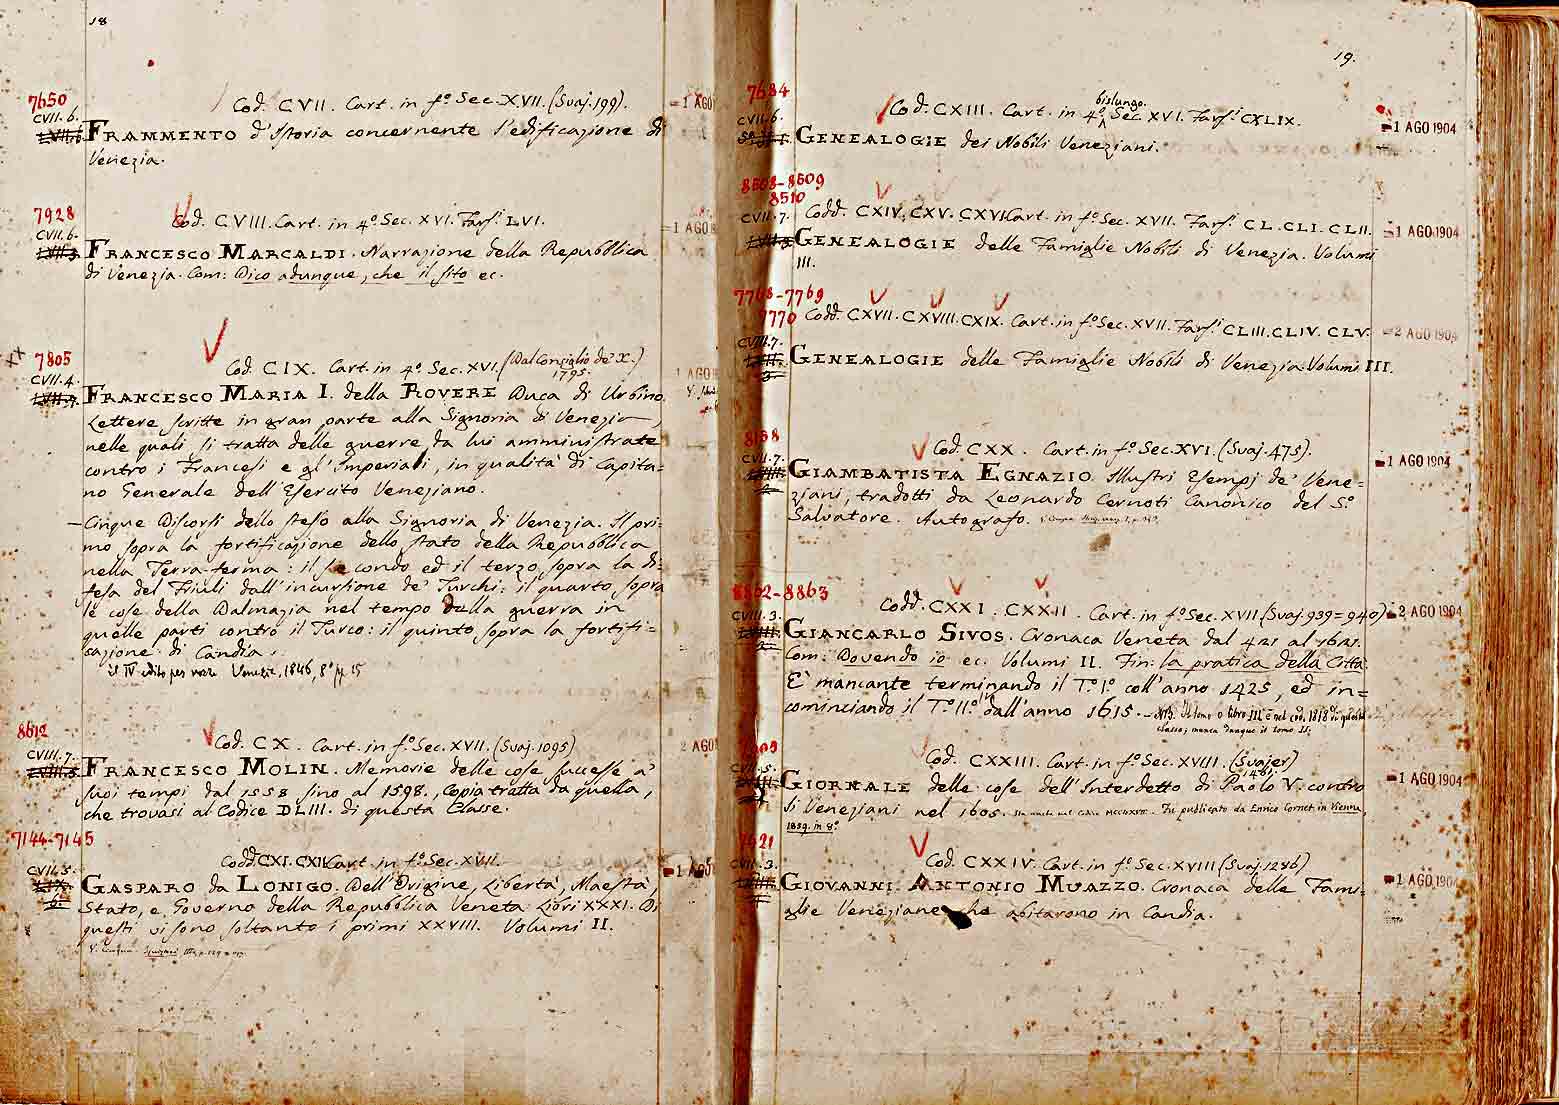 18
7650
Cod. CVII. Cart. in fº Sec. XVII. (Svaj. 199).
= 1 AGO
CVII. 6.
FRAMMENTO d'Istoria concernente l'edificazione di
Venezia.
7928
Cod. CVIII. Cart. in 4º Sec. XVI. Farsi LVI.
= 1 AGO
CVII. 6.
FRANCESCO MARCALDI. Narrazione della Repubblica
di Venezia. Com: Dico adunque, che il sito ec.
7805
Cod. CIX. Cart. in 4º Sec. XVI. (Dal Consiglio de' X.)
1795.
1 AGO
CVII. 4.
FRANCESCO MARIA I. della ROVERE Duca di Urbino.
Lettere scritte in gran parte alla Signoria di Venezia,
nelle quali si tratta delle guerre da lui amministrate
contro i Francesi e gl'Imperiali, in qualità di Capita-
no Generale dell'Esercito Veneziano.
- Cinque Discorsi dello stesso alla Signoria di Venezia. Il pri-
mo sopra la fortificazione dello stato della Repubblica
nella Terra-ferma: il secondo ed il terzo sopra la di-
fesa del Friuli dall'incursione de' Turchi: il quarto sopra
le cose della Dalmazia nel tempo della guerra in
quelle parti contro il Turco: il quinto sopra la fortifi=
cazione di Candia.
il IV edito per nozze Venezia, 1846, 8º pp 15
8612
Cod. CX. Cart. in fº Sec. XVII. (Svaj. 1095)
2 AGO
CVIII. 7.
FRANCESCO MOLIN. Memorie delle cose successe a'
suoi tempi dal 1558 sino al 1598, copia tratta da quella,
che trovasi al Codice DLIII. di questa Classe.
7144-7145
Codd. CXI. CXII. Cart. in fº Sec. XVII.
= 1 AGO
CVII. 3.
GASPARO da LONIGO. Dell'Origine, Libertà, Maestà,
Stato, e Governo della Repubblica Veneta Libri XXXI. Di
questi vi sono soltanto i primi XXVIII. Volumi II.
19.
7684
Cod. CXIII. Cart. in 4º bislungo. Sec. XVI. Farsi CXLIX.
= 1 AGO 1904
CVII. 6.
GENEALOGIE dei Nobili Veneziani.
8508-8509
8510
Codd. CXIV. CXV. CXVI. Cart. in fº Sec. XVII. Farsi CL. CLI. CLII.
= 1 AGO 1904
CVII. 7.
GENEALOGIE delle Famiglie Nobili di Venezia. Volumi
III.
7768-7769
7770
Codd. CXVII. CXVIII. CXIX. Cart. in fº Sec. XVII. Farsi CLIII. CLIV. CLV.
= 2 AGO 1904
CVIII. 7.
GENEALOGIE delle Famiglie Nobili di Venezia. Volumi III.
8158
Cod. CXX. Cart. in fº Sec. XVI. (Svaj. 475).
= 1 AGO 1904
CVII. 7.
GIAMBATISTA EGNAZIO. Illustri Esempj de' Vene=
ziani, tradotti da Leonardo Cernoti Canonico del Sº
Salvatore. Autografo.
8862-8863
Codd. CXXI. CXXII. Cart. in fº Sec. XVII. (Svaj. 939 = 940)
= 2 AGO 1904
CVIII. 3.
GIANCARLO SIVOS. Cronaca Veneta dal 421 al 1621.
Com: Dovendo io ec. Volumi II. Fin: la pratica della Città.
E' mancante terminando il Tº Iº coll'anno 1425, ed in=
cominciando il Tº IIº dall'anno 1615. - NB. Il tomo o libro III è nel cod. 1818 di questa
classe; manca dunque il tomo II.
Cod. CXXIII. Cart. in fº Sec. XVIII. (Svajer)
1481.
= 1 AGO 1904
GIORNALE delle cose dell'Interdetto di Paolo V. contro
li Veneziani nel 1605. Fu publicato da Enrico Cornet in Vienna,
1859. in 8º
Cod. CXXIV. Cart. in fº Sec. XVIII (Svaj. 1286)
= 1 AGO 1904
GIOVANNI ANTONIO MUAZZO. Cronaca delle Fami-
glie Veneziane che abitarono in Candia.